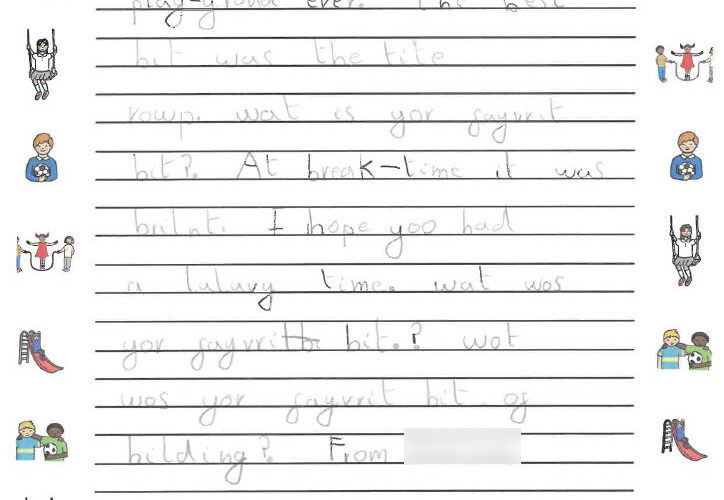 play-ground ever. The best
bit was the tite
rowp. wat is yor fayvrit
bit?. At break-time it was
brilnt. I hope yoo had
a luluvy time. wat wos
yor fayvrit bit.? wot
wos yor fayvrit bit of
bilding? From